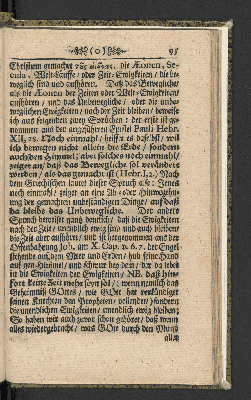 ( o ) 95
Christum gemachet τὰς αἰῶνας, die Æonen, Se-
cula, Welt-Läuffe / oder Zeit-Ewigkeiten / die be-
weglich sind und aufhören. Daß das Bewegliche /
als die Æonen der Zeiten oder Welt-Ewigkeiten /
aufhören / und das Unbewegliche / oder die unbe-
weglichen Ewigkeiten / nach der Zeit bleiben / beweise
ich aus folgenden zwey Sprüchen: der erste ist ge-
nommen aus der angeführten Epistel Pauli Hebr.
XII, 27. Noch einmahl / heisset es daselbst / will
ich bewegen nicht allein die Erde / sondern
auch den Himmel; aber solches noch einmahl /
zeiget an / daß das Bewegliche sol verändert
werden / als das gemacht ist (Hebr. I, 2.) Nach
dem Griechischen lautet dieser Spruch also: Jenes
noch einmahl / zeiget an eine
der gemachten unbeständigen Dinge / auf daß
da bleibe das Unbewegliche. Der andere
Spruch betrifft gantz deutlich / daß die Ewigkeiten
nach der Zeit / unendlich ewig sind und auch bleiben /
die Zeit aber aufhöret / und ist hergenommen aus der
Offenbahrung Joh. im X. Cap. v. 6. 7. der Engel
stehende auf dem Meer und Erden / hub seine Hand
auf gen Himmel / und schwur bey dem / der da lebet
in die Ewigkeiten der Ewigkeiten / NB. daß hin-
fort keine Zeit mehr seyn sol / wenn nemlich das
Geheimniß GOttes / wie GOtt hat verkündiget
seinen Knechten den Propheten / vollendet / sondern
die unendlichen Ewigkeiten / unendlich ewig bleiben.
So haben wir auch zuvor schon gehöret / daß wenn
alles wiedergebracht / was GOtt durch den Mund
aller